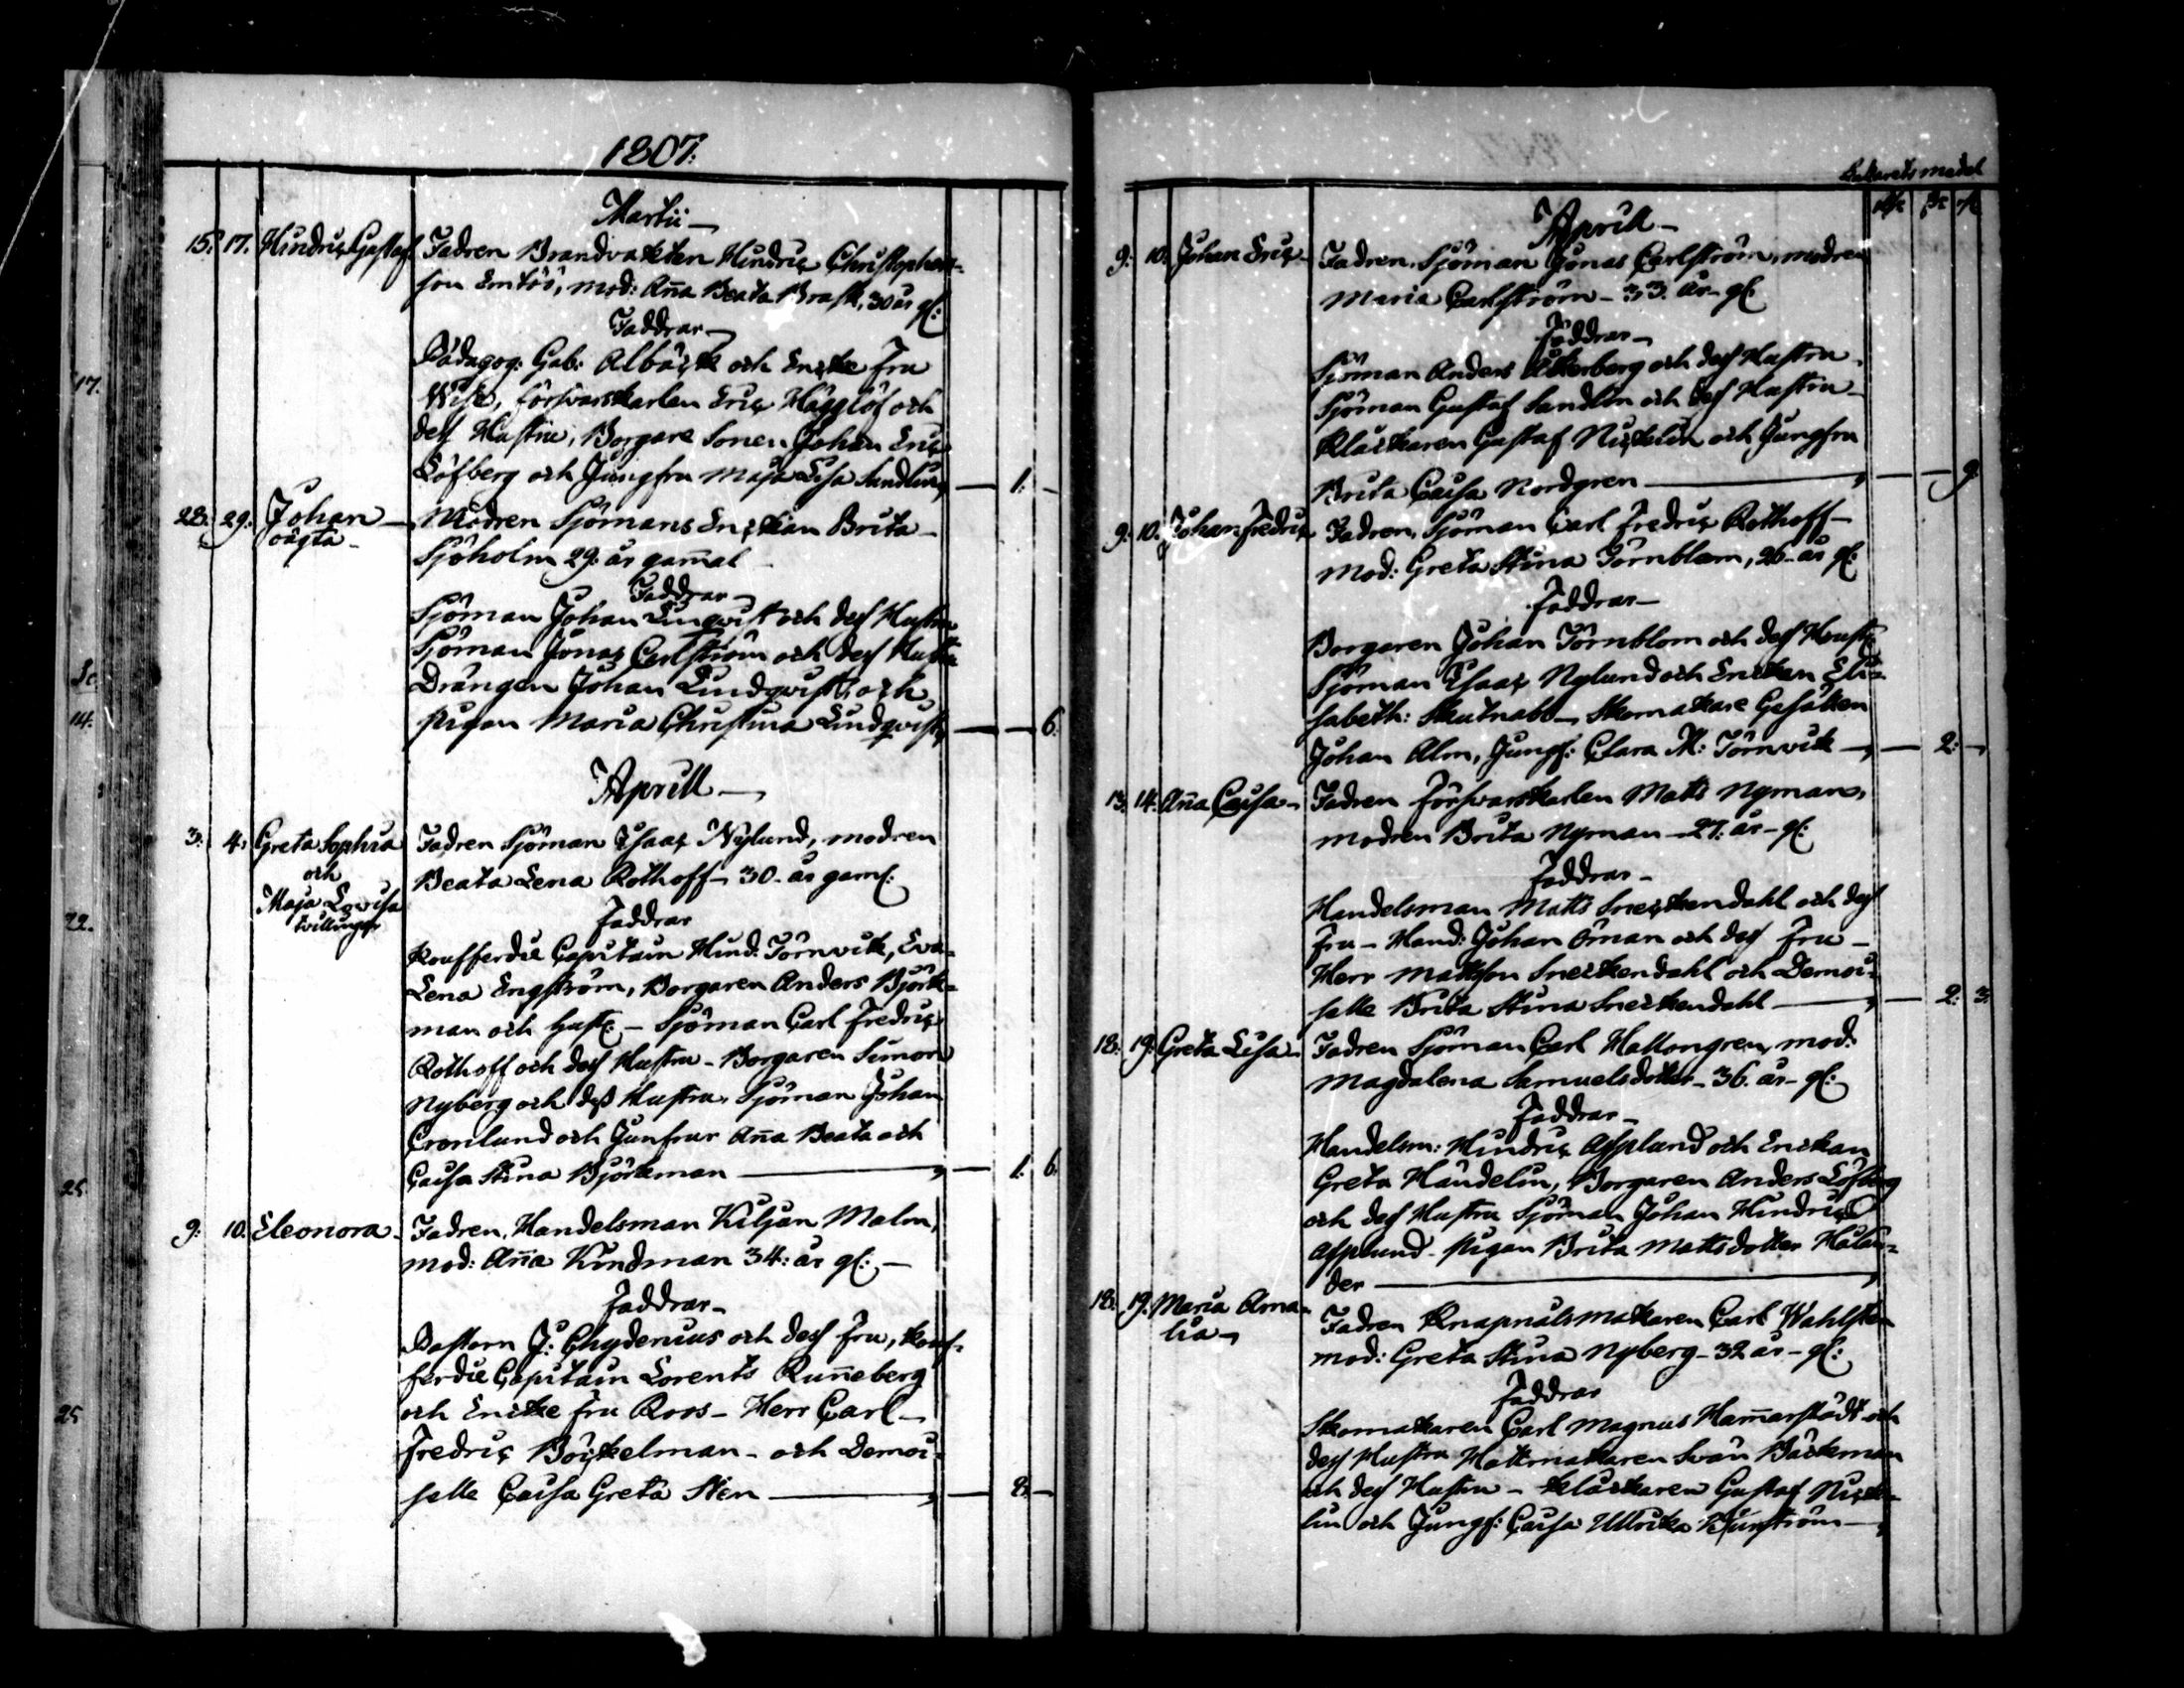 1807.
Martii
15. 17. Hindric Gustaf Fadren Brandvakten Hindric Christophers-
son Emtöö, mod: Aña Beata Brask, 30 år gl:
Faddrar
Pädagog. Gab: Albäck och Encke Fru
Wisk, försvarskarlen Eric Hägglöf och
dess Hustru, Borgare Sonen Johan Eric
Löfberg och Jungfru Maja Lisa Sandlund — 1. —
28. 29. Johan Modren Sjömans Enckan Brita
oägta Sjöholm 29. år gam̃al
Faddrar
Sjöman Johan Linqvist och dess Hustru
Sjöman Jonas Carlström och dess Hustru
Drängen Johan Lindqvist, och
pigan Maria Christina Lindqvist — — 6.
Aprill
3. 4. Greta Sophia Fadren Sjöman Isaac Nylund, modren
och Beata Lena Rothoff 30. år gaml:
Maja Lovisa
tvillingar Faddrar
Koufferdie Capitain Hind: Törnvik, Eva
Lena Engström, Borgaren Anders Björk-
man och hust: – Sjöman Carl Fredric
Rothoff och dess Hustru – Borgaren Simon
Nyberg och dess Hustru, Sjöman Johan
Cronlund och Junfrur Aña Beata och
Caisa Stina Björkman — 1. 6.
9. 10. Eleonora Fadren, Handelsman Kiljan Malm,
mod: Aña Kindman 34. år gl:
Faddrar
Pastorn J: Chydenius och dess Fru, Kouf-
ferdie Capitain Lorents Runneberg
och Encke Fru Roos – Herr Carl
Fredric Böckelman – och Demoi-
selle Caisa Greta Sten — 8. —
Aprill
9. 10. Johan Eric Fadren, Sjöman Jonas Carlström, modren
Maria Carlström – 33. år gl:
Faddrar
Sjöman Anders Åkerberg och dess Hustru
Sjöman Gustaf Sandlin och dess Hustru
Klåckaren Gustaf Nickelin och Jungfru
Brita Caisa Nordgren — — 9.
9. 10. Johan Fredric Fadren, Sjöman Carl Fredric Rothoff
Mod: Greta Stina Törnblom, 26. år gl:
Faddrar
Borgaren Johan Törnblom och dess Hustr:
Sjöman Isaac Nylund och Enckan Eli-
sabeth: Skutnabb – Skomakare Gesällen
Johan Alm, Jungf: Clara M: Törnvik — 2. —
13. 14. Aña Caisa Fadren försvarskarlen Matts Nyman,
modren Brita Nyman – 27. år gl:
Faddrar
Handelsman Matts Sneckendahl och dess
Fru – Hand: Johan Öman och dess Fru –
Herr Mattson Sneckendahl och Demoi-
selle Brita Stina Sneckendahl — 2. 3.
18. 19. Greta Lisa Fadren Sjöman Carl Hallongren, mod:
Magdalena Samuelsdotter – 36. år gl:
Faddrar
Handelsm: Hindric Asplund och Enckan
Greta Händelin, Borgaren Anders Löfberg
och dess Hustru Sjöman Johan Hindric
Asplund – pigan Brita Mattsdotter Hälan-
der
18. 19. Maria Ama- Fadren Knapnålsmakaren Carl Wahlsten
lia mod: Greta Stina Nyberg – 32 år gl:
Faddrar
Skomakaren Carl Magnus Ham̃arstädt och
dess Hustru Hattmakaren Svän Bäckman
och dess Hustru – klåckaren Gustaf Nicke-
lin och Jungf: Caisa Ullrika Burström